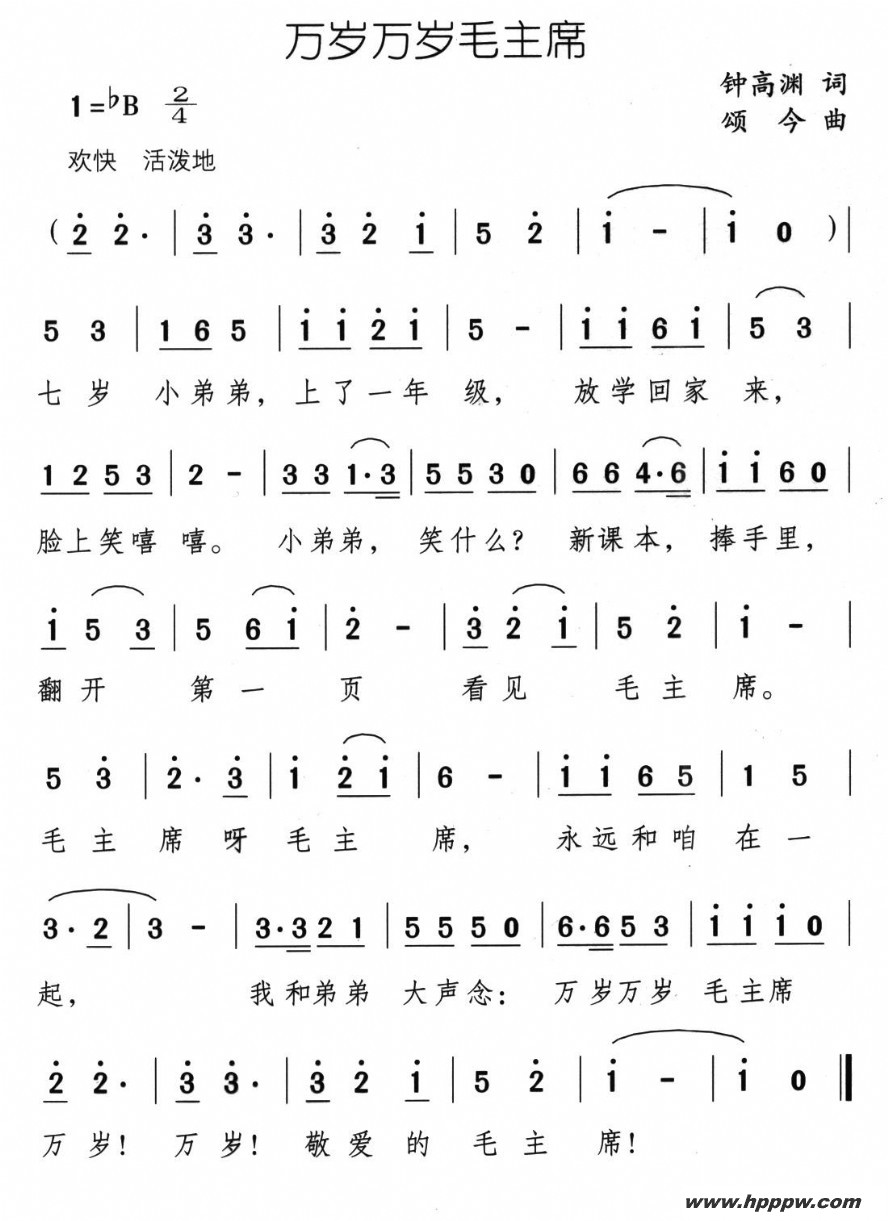 万岁万岁毛主席
钟高渊 词
1=♭B 2/4
颂 今 曲
欢快 活泼地
( 2̇ 2̇· | 3̇ 3̇· | 3̇ 2̇ 1̇ | 5 2̇ | 1̇ - | 1̇ 0 ) |
5 3 | 1 6 5 | 1̇ 1̇ 2̇ 1̇ | 5 - | 1̇ 1̇ 6 1̇ | 5 3 |
七 岁 小 弟 弟, 上 了 一 年 级, 放 学 回 家 来,
1 2 5 3 | 2 - | 3 3 1·3 | 5 5 3 0 | 6 6 4·6 | 1̇ 1̇ 6 0 |
脸 上 笑 嘻 嘻。 小 弟 弟, 笑 什 么? 新 课 本, 捧 手 里,
1̇ 5 3 | 5 6 1̇ | 2̇ - | 3̇ 2̇ 1̇ | 5 2̇ | 1̇ - |
翻 开 第 一 页 看 见 毛 主 席。
5 3̇ | 2̇· 3̇ | 1̇ 2̇ 1̇ | 6 - | 1̇ 1̇ 6 5 | 1 5 |
毛 主 席 呀 毛 主 席, 永 远 和 咱 在 一
3· 2 | 3 - | 3·3 2 1 | 5 5 5 0 | 6·6 5 3 | 1̇ 1̇ 1̇ 0 |
起, 我 和 弟 弟 大 声 念: 万 岁 万 岁 毛 主 席
2̇ 2̇· | 3̇ 3̇· | 3̇ 2̇ 1̇ | 5 2̇ | 1̇ - | 1̇ 0 ‖
万 岁! 万 岁! 敬 爱 的 毛 主 席!
www.hpppw.com